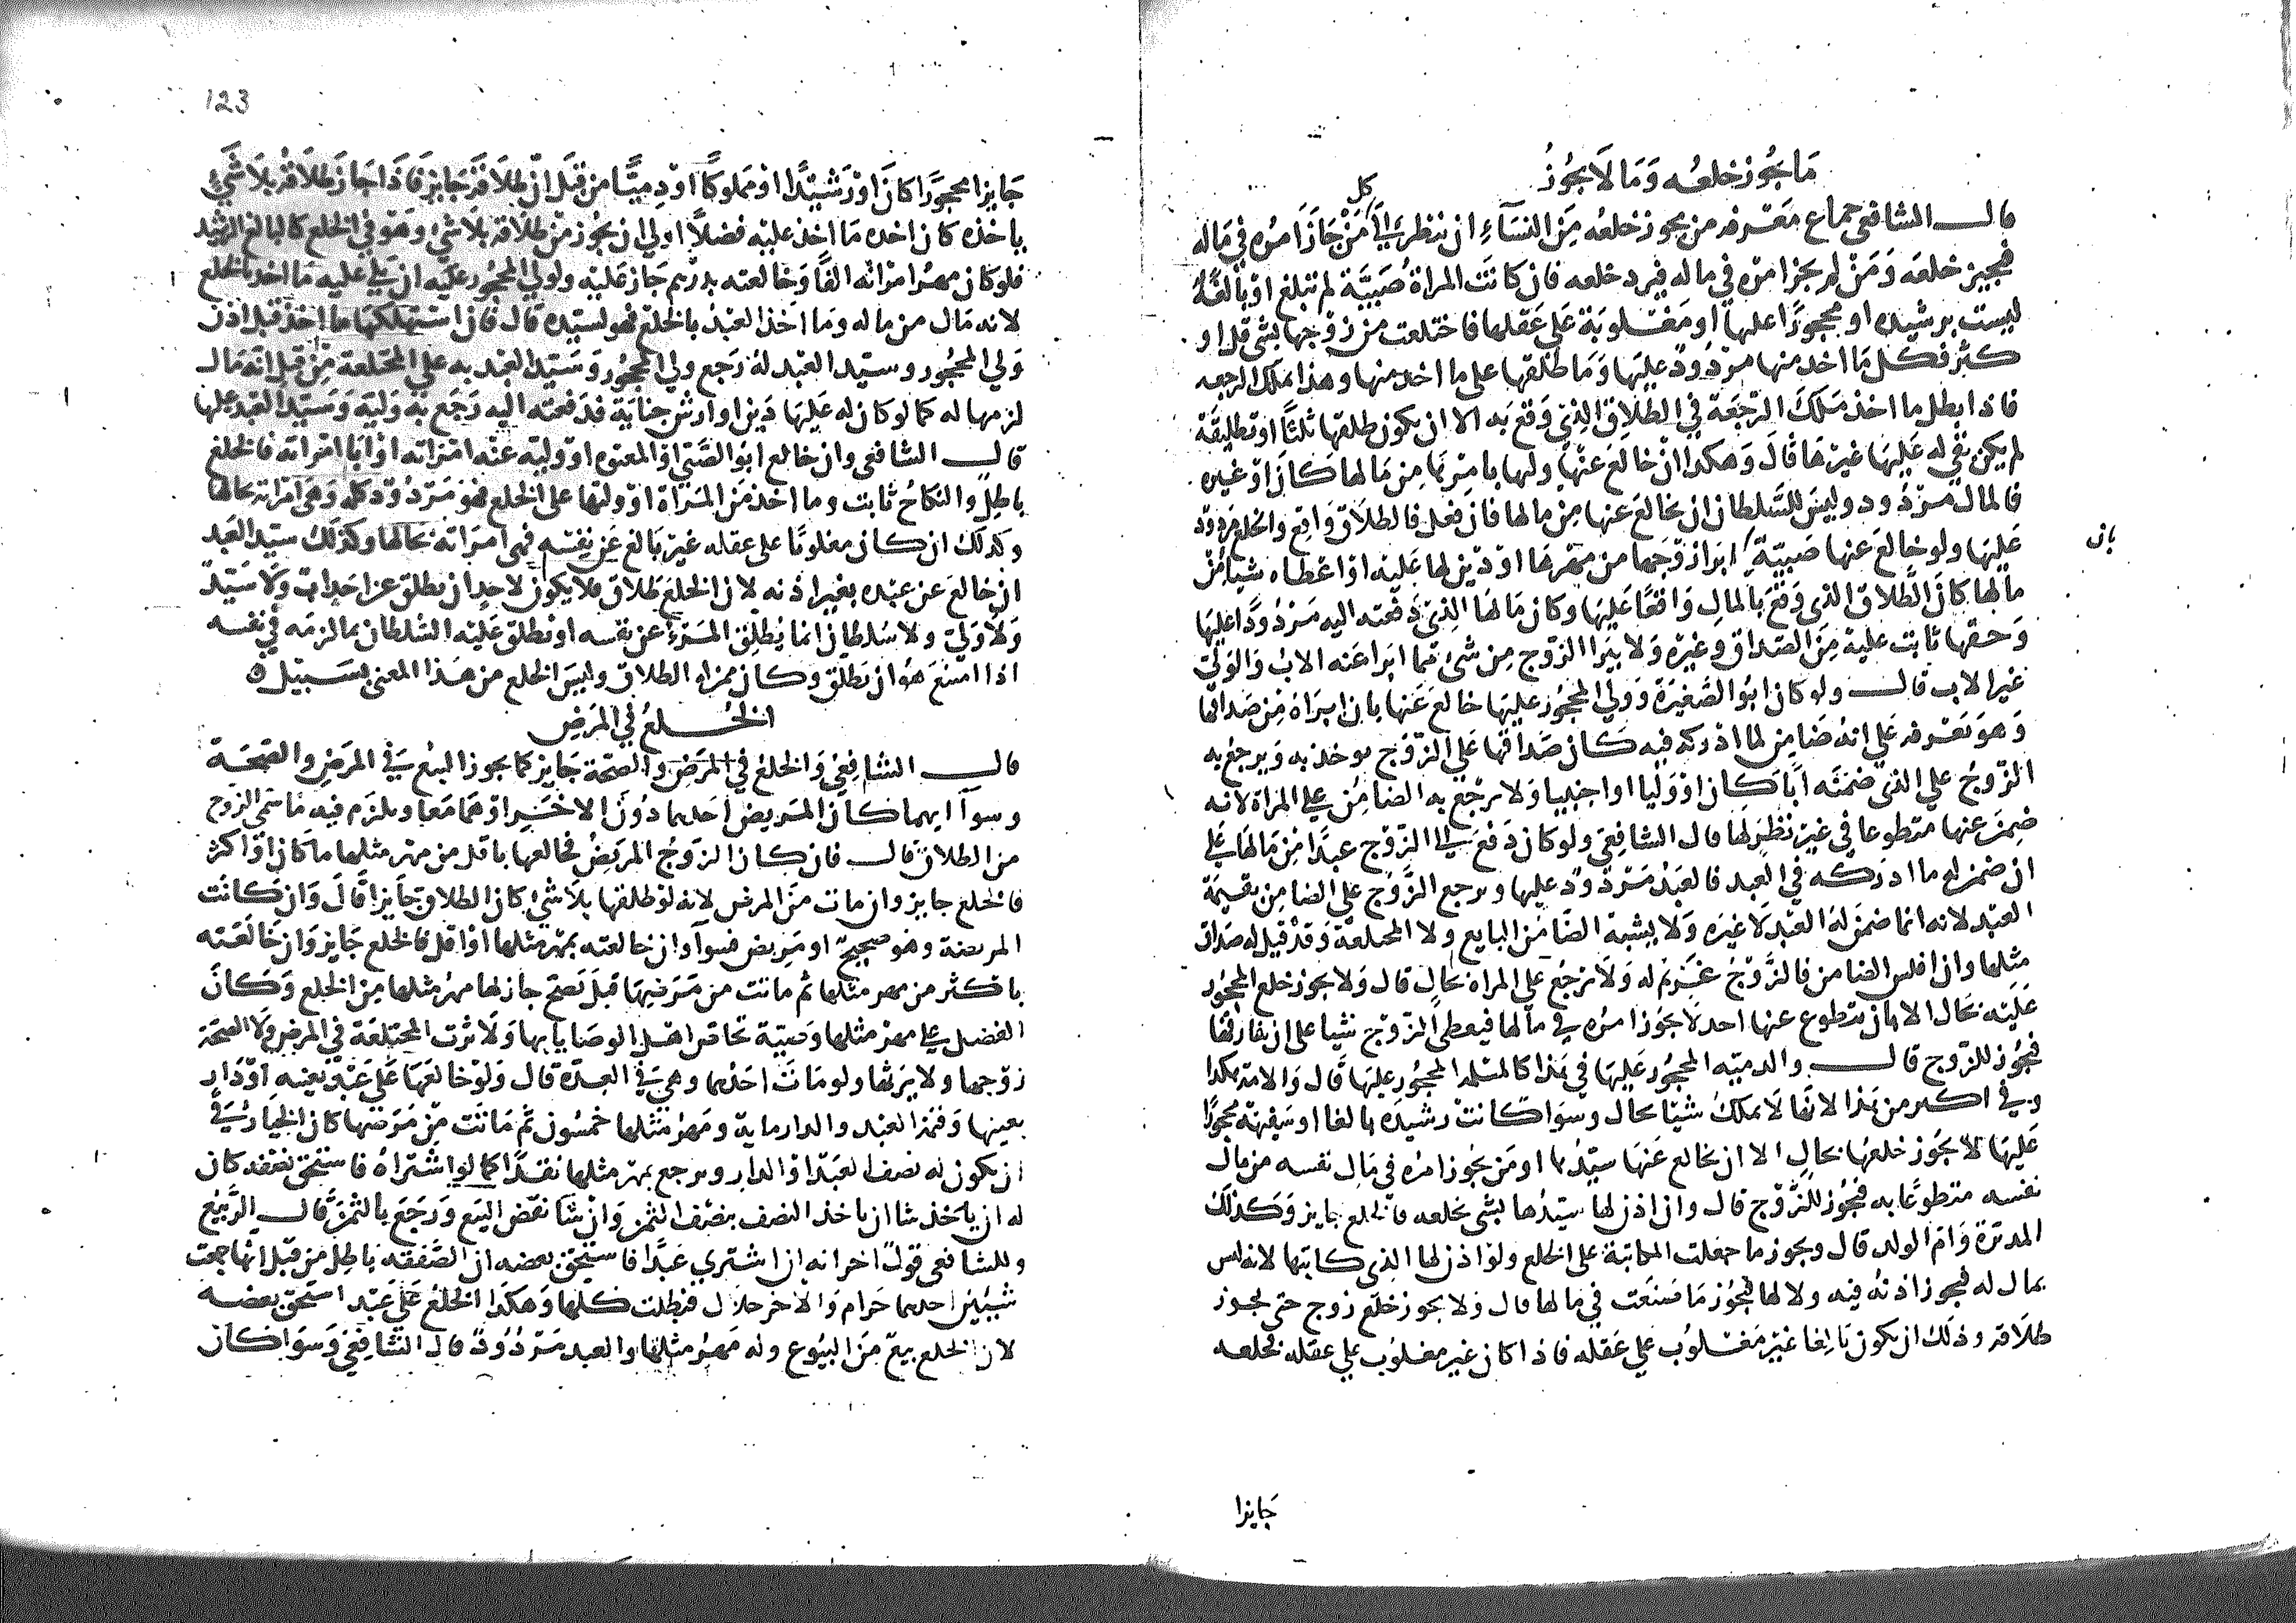 ما يجوز خلعه وما لا يجوز
كل
قال الشافعي جماع معرفة من يجوز خلعه من النساء ان ننظر الى من جاز امره في ماله
فنجيز خلعه ومن لم يجز امره في ماله فيرد خلعه فان كانت المراة صبية لم تبلغ او بالغة
ليست برشيده او محجورا عليها او مغلوبة على عقلها فاختلعت من زوجها بشي قل او
كثر فكل ما اخد منها مردود عليها وما طلقها على ما اخد منها وهذا يملك الرجعه
فاذا بطل ما اخذ ملك الرجعة في الطلاق الذي وقع به الا ان يكون طلقها ثلثا او تطليقة
لم يكن بقي له عليها غيرها قال وهكدا ان خالع عنها وليها بامرها من مالها كان او غيره
فالمال مردود وليس للسلطان ان يخالع عنها من مالها فان فعل فالطلاق واقع والخلع مردود
عليها ولو خالع عنها صبية ابرا زوجها من مهرها او دين لها عليه او اعطاه شيا من
بان
مالها كان الطلاق الذي وقع بالمال واقعا عليها وكان مالها الذي دفعته اليه مردودا عليها
وحقها ثابت عليه من الصداق وغيره ولا يبرا الزوج من شئ مما ابراه عنه الاب والولي
غير الاب قال ولو كان ابو الصغيرة وولي المحجور عليها خالع عنها بان ابراه من صداقها
وهو يعرفه على انه ضامن لما ادركه فيه كان صداقها على الزوج يوخذ به ويرجع به
الزوج على الذي ضمنه ابا كان او وليا او اجنبيا ولا يرجع به الضامن على المراة لانه
ضمن عنها متطوعا في غير نظر لها قال الشافعي ولو كان دفع الى الزوج عبدا من مالها على
ان ضمن له ما ادركه في العبد فالعبد مردود عليها ويرجع الزوج على الضامن بقيمة
العبد لانه انما ضمن له العبد لا غيره ولا يشبه الضامن البايع ولا المختلعة وقد قيل له صداق
مثلها وان افلس الضامن فالزوج غريم له ولا يرجع على المراه بحال قال ولا يجوز خلع المحجور
عليه بحال الا بان يتطوع عنها احد لا يجوز امره في مالها فيعطى الزوج شيا على ان يفارقها
فيجوز للزوج قال والدميه المحجور عليها في هذا كالمسلمه المحجور عليها قال والامة هكدا
وفي اكثر من هذا لانها لا تملك شيا بحال وسوا كانت رشيده بالغا او سفيهة محجورا
عليها لا يجوز خلعها بحال الا ان يخالع عنها سيدها او من يجوز امره في مال نفسه من مال
نفسه متطوعا به فيجوز للزوج قال وان اذن لها سيدها بشي تخلعه فالخلع جايز وكذلك
المدبرة وام الولد قال ويجوز ما جعلت المكاتبة على الخلع ولو اذن لها الذي كاتبها لانه ليس
بمال له فيجوز اذنه فيه ولا لها فيجوز ما صنعت في مالها قال ولا يجوز خلع زوج حتى يجوز
طلاقه وذلك ان يكون بالغا غير مغلوب على عقله فاذا كان غير مغلوب على عقله فخلعه
جايزا
123
جايزا محجورا كان او رشيدا او مملوكا او دميا من قبل ان طلاقه جايز فاذا جاز طلاقه بلا شئ
ياخذه كان اخده ما اخذ عليه فضلا اولى ان يجوز من طلاقه بلا شئ وهو في الخلع كالبالغ الرشيد
فلو كان مهر امراته الفا وخالعته بدرهم جاز عليه ولولي المحجور عليه ان يلي عليه ما اخد بالخلع
لانه مال من ماله وما اخذ العبد بالخلع فهو لسيده قال فان استهلكها ما اخذ قبل اذن
ولي المحجور وسيد العبد له رجع ولي المحجور وسيد العبد به على المختلعة من قبل انه مال
لزمها له كما لو كان له عليها دين او ارش جناية فدفعته اليه رجع به وليه وسيد العبد عليها
قال الشافعي وان خالع ابو الصبي او المعتوه او وليه عنه امراته او ابا امراته فالخلع
باطل والنكاح ثابت وما اخذ من المراة او وليها على الخلع فهو مردود كله وهي امراته بحالها
وكذلك ان كان مغلوبا على عقله غير بالغ عن نفسه فهي امراته بحالها وكذلك سيد العبد
ان خالع عن عبده بغير اذنه لان الخلع طلاق فلا يكون لاحد ان يطلق عن احد اب ولا سيد
ولا ولي ولا سلطان انما يطلق المرء عن نفسه او يطلق عليه السلطان بما لزمه في نفسه
اذا امتنع هو ان يطلق وكان ممن له الطلاق وليس الخلع من هذا المعنى بسبيل
الخلع في المرض
قال الشافعي والخلع في المرض والصحة جايز كما يجوز البيع في المرض والصحة
وسوا ايهما كان المريض احدهما دون الاخر او هما معا ويلزم فيه ما سمى الزوج
من الطلاق قال فان كان الزوج المريض فخالعها باقل من مهر مثلها ما كان او اكثر
فالخلع جايز وان مات من المرض لانه لو طلقها بلا شئ كان الطلاق جايزا قال وان كانت
المريضة وهو صحيح او مريض فسوا وان خالعته بمهر مثلها او اقل فالخلع جايز وان خالعته
باكثر من مهر مثلها ثم ماتت من مرضها قبل تصح جاز لها مهر مثلها من الخلع وكان
الفضل على مهر مثلها وصية تحاص اهل الوصايا بها ولا ترث المختلعة في المرض ولا الصحة
زوجها ولا يرثها ولو مات احدهما وهي في العدة قال ولو خالعها على عبد بعينه او دار
بعينها وقيمة العبد والدار ماية ومهر مثلها خمسون ثم ماتت من مرضها كان الخيار في
ان يكون له نصف العبد او الدار ويرجع بمهر مثلها نقدا كما لو اشتراه فاستحق نصفه كان
له ان ياخذ شا ان ياخذ النصف بنصف الثمن وان شا نقض البيع ورجع بالثمن قال الربيع
وللشافعي قول اخر انه ان اشترى عبدا فاستحق بعضه ان الصفقه باطل من قبل انها جمعت
شيئين احدهما حرام والاخر حلال فبطلت كلها وهكذا الخلع على عبد استحق بعضه
لان الخلع بيع من البيوع وله مهر مثلها والعبد مردود قال الشافعي وسوا كان